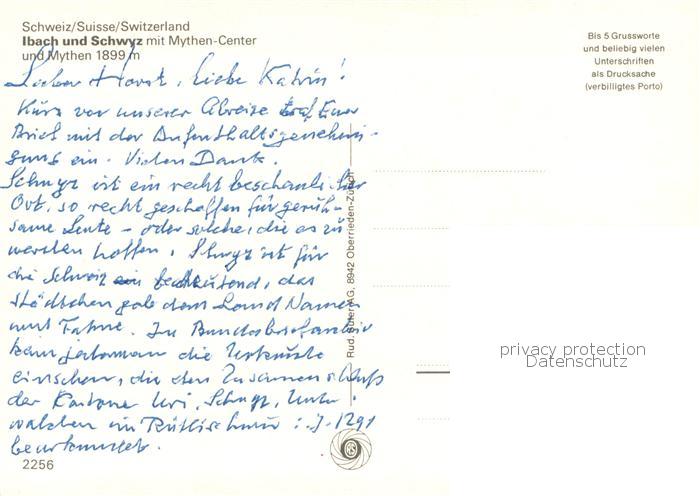 Schweiz/Suisse/Switzerland
Ibach und Schwyz mit Mythen-Center
und Mythen 1899 m
Lieber Horst, liebe Katrin!
Kurz vor unserer Abreise traf Euer
Brief mit der Aufenthaltsgenehmi-
gung ein. Vielen Dank.
Schwyz ist ein recht beschaulicher
Ort, so recht geschaffen für geruh-
same Leute - oder solche, die es zu
werden hoffen. Schwyz ist für
die Schweiz bedeutend, das
Städtchen gab dem Land Namen
und Fahne. Im Bundesbriefarchiv
kann jedermann die Urkunde
einsehen, die den Zusammenschluß
der Kantone Uri, Schwyz, Unter-
walden im Rütlischwur i. J. 1291
beurkundet.
2256
Rud. Suter AG, 8942 Oberrieden-Zürich
Bis 5 Grussworte
und beliebig vielen
Unterschriften
als Drucksache
(verbilligtes Porto)
privacy protection
Datenschutz